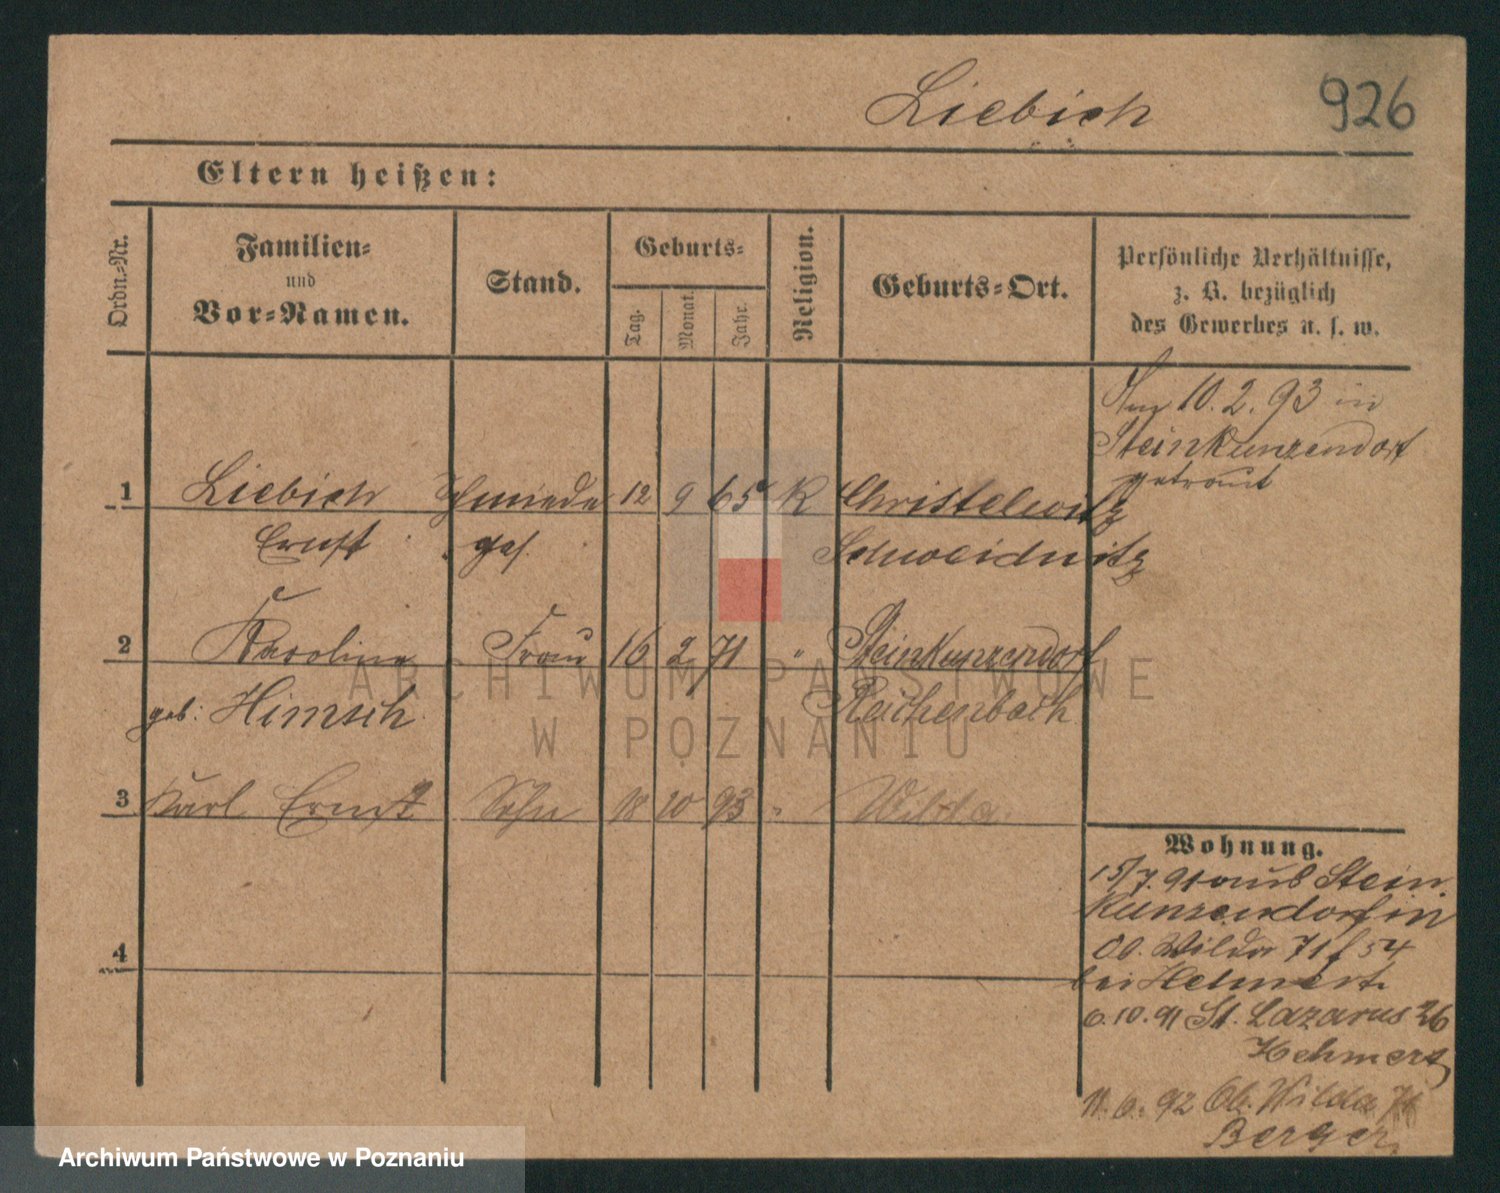 Liebich 926
Eltern heißen:
Ordn.-Nr.
Familien-
und
Vor-Namen.
Stand.
Geburts-
Tag.
Monat.
Jahr.
Religion.
Geburts-Ort.
Persönliche Verhältnisse,
z. B. bezüglich
des Gewerbes u. s. w.
Am 10.2.93 in
Steinkunzendorf
getraut
1 Liebich Schmiede 12 9 65 K Christelwitz
Ernst ges. Schweidnitz
2 Karoline Frau 16 2 71 " Steinkunzendorf
geb: Himsch Reichenbach
3 Karl Ernst Sohn 18 10 93 " Wilda
4
Wohnung.
15/7.91 aus Stein
Kunzendorf in
Ob. Wilda 71 f 54
bei Hehmert
6.10.91 St. Lazarus 26
Hehmert
11.6.92 Ob. Wilda 71
Berger
ARCHIWUM PAŃSTWOWE
W POZNANIU
Archiwum Państwowe w Poznaniu